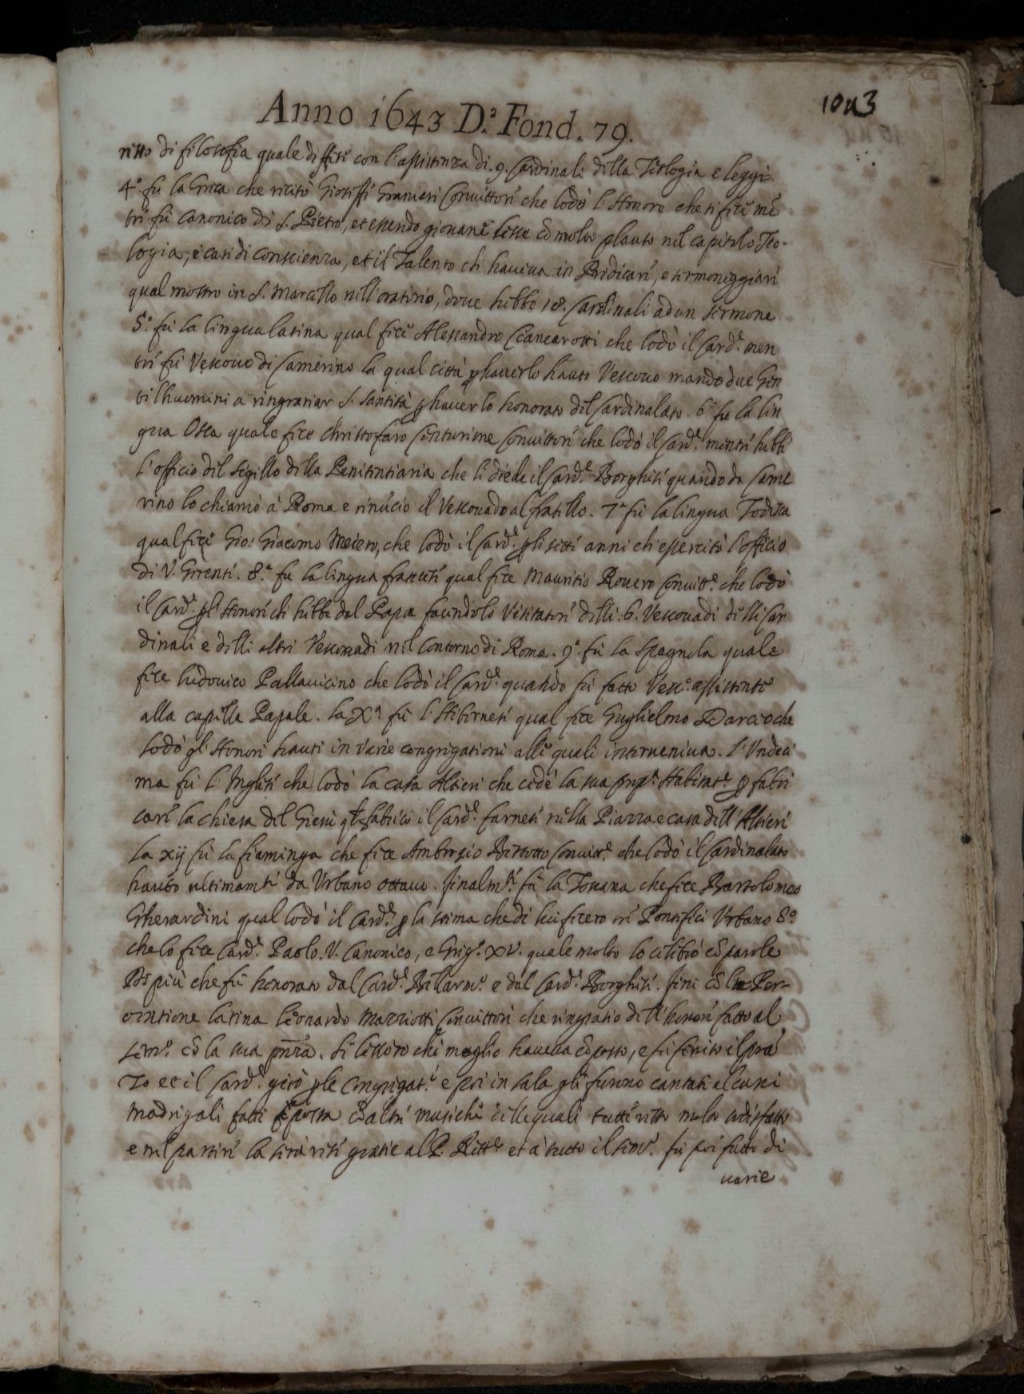 1043
Anno 1643 D.ª Fond. 79.
ritto di filosofia quale diffese con l'assistenza di .9. Cardinali della Teologia e leggi.
4.º fu la Greca che recitò Gioseffe Granieri Convittore che lodò l'Honore che si fece mē
tre fù Canonico di S. Pietro, et essendo giovane lesse cō molto plauso nel capitolo Teo-
logia, e casi di conscienza, et il Talento che haveva in Predicare, e sermoneggiare
qual mostrò in S. Marcello nell'oratorio, dove hebbe 18. Cardinali ad un sermone
5.º fu la lingua latina qual fece Alessandro Ciancarotti che lodò il Card.e men
tre fù Vescovo di Camerino la qual città p haverlo hauto Vescovo mandò due Gen
til'huomini a ringratiar S. Santità p haverlo honorato del Cardinalato. 6.º fu la lin
gua Osca quale fece Christofaro Convittore che lodò il Card.e mentre hebbe
l'officio del sigillo della Penitentiaria che li diede il Card.e Borghese quando da Came
rino lo chiamò à Roma e rinūciò il Vescovado al fratello. 7.º fù la lingua Todesca
qual fece Gio: Giacomo Meiero, che lodò il Card.e p li sette anni ch'essercitò l'officio
di V. Gerente. 8.º fu la lingua francese qual fece Mauritio Rovero Convitt.e che lodò
il Card.e p l'Honore ch'hebbe dal Papa facendolo Visitatore delli .6. Vescovadi delli Car
dinali e delli altri Vescovadi nel Contorno di Roma. 9.º fù la Spagnola quale
fece Ludovico Pallavicino che lodò il Card.e quando fù fatto Vesc.º assistente
alla capella Papale. La Xª fù l'Hibernese qual fece Guglielmo Darcio che
lodò gl'Honori hauti in varie congregationi alle quali interveniva. L'Undeci
ma fù l'Inglese che lodò la casa Altieri che cedè la sua prop.ª p fabri
care la chiesa del Giesù fabricò il Card.e Farnese nella Piazza e casa dell'Altieri
La xij fù la fiaminga che fece Ambrosio Convitt.e che lodò il Cardinalato
hauto ultimam.te da Urbano ottavo. finalm.te fù la Toscana che fece Bartolomeo
Gherardini qual lodò il Card.e p la stima che di lui fecero tre Pontefici Urbano 8.º
che lo fece Card.e Paolo V. Canonico, e Greg.º XV. quale molto lo celebrò cō parole
più che fù honorato dal Card.e Bellarm.º e dal Card.e Borghese. finì cō la Per-
oratione latina Leonardo Marriotti Convittore che ringratiò dell'honore fatto al
Sem.º cō la sua pñza. Si lessero che meglio haveva cōposto, e fù servito il prā
zo et il Card.e girò p le Congregat.i e poi in sala gli furono cantati alcuni
madrigali fatti à posta cō altre musiche delle quali tutte restò molto sodisfatto
e nel partire la sera rese gratie al P. Rett.e et à tutto il Sem.º fù poi fatto di
varie